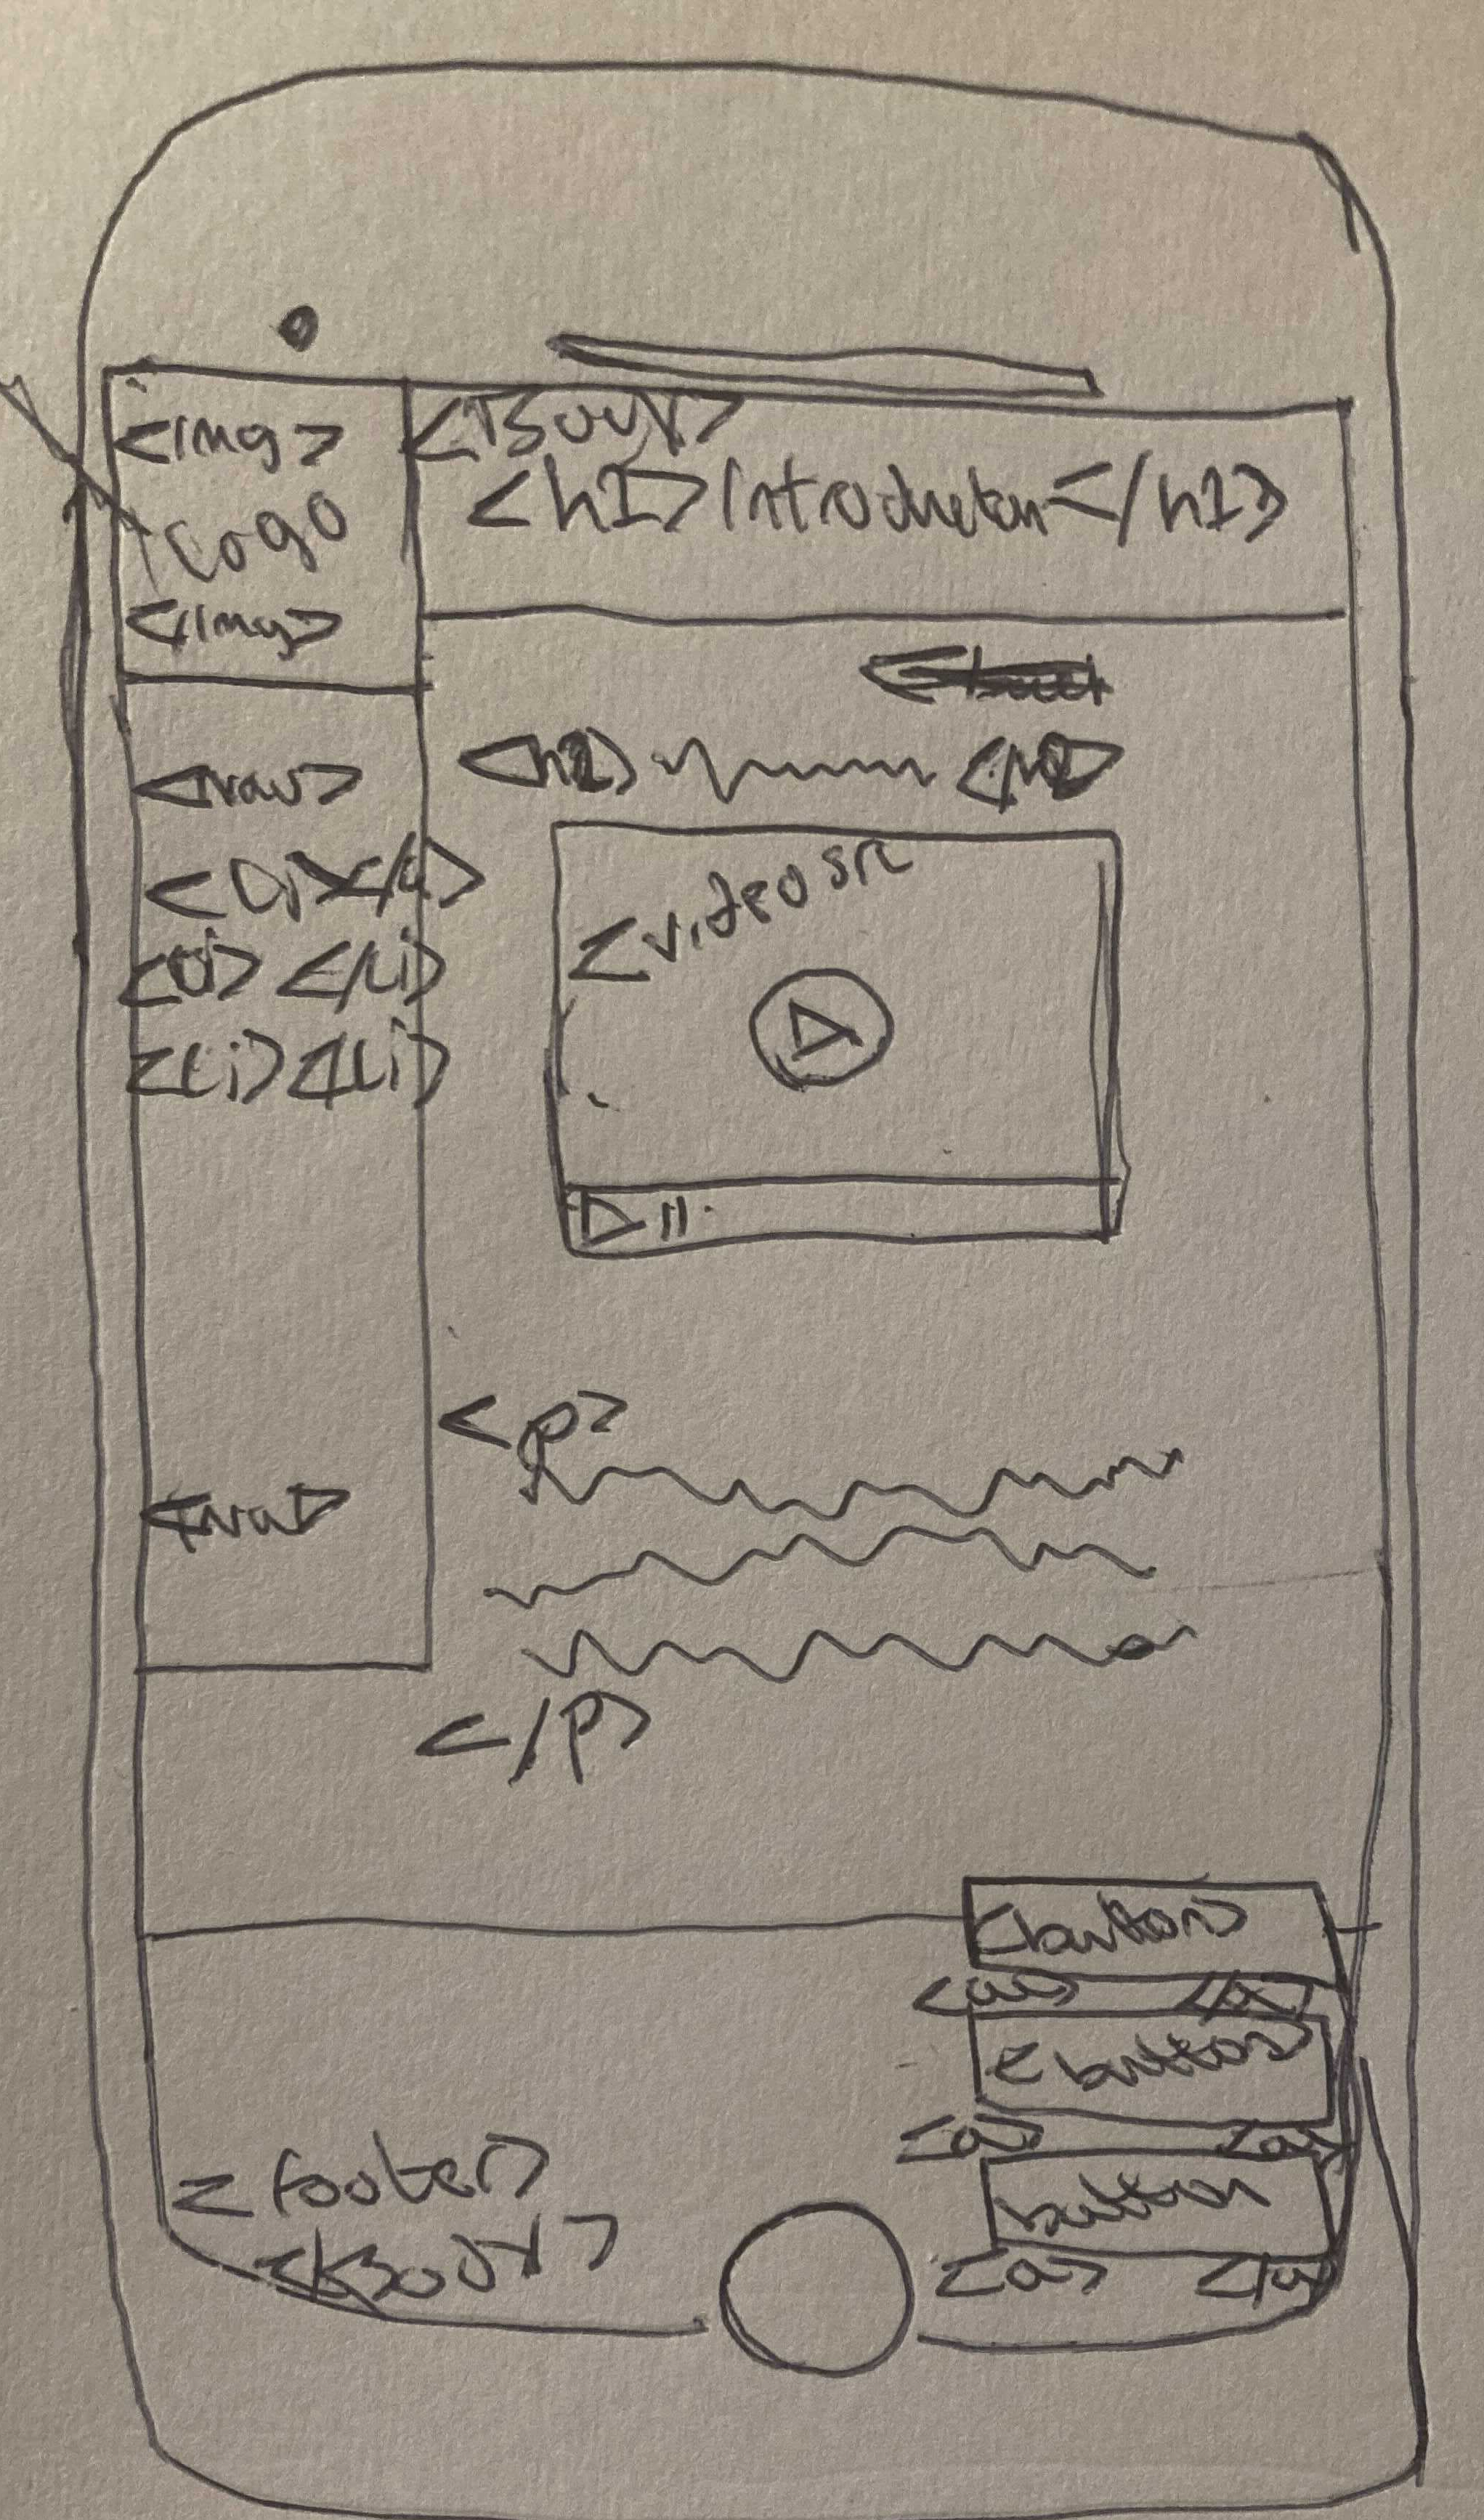 <img>
Logo
</img>
<Body>
<h1>Introduction</h1>
<nav>
<Li></Li>
<Li></Li>
<Li></Li>
<h2> </h2>
<video src
<p>
</p>
<button>
<a> </a>
<button>
<a> <a>
button
<a> </a
<footer>
</Body>